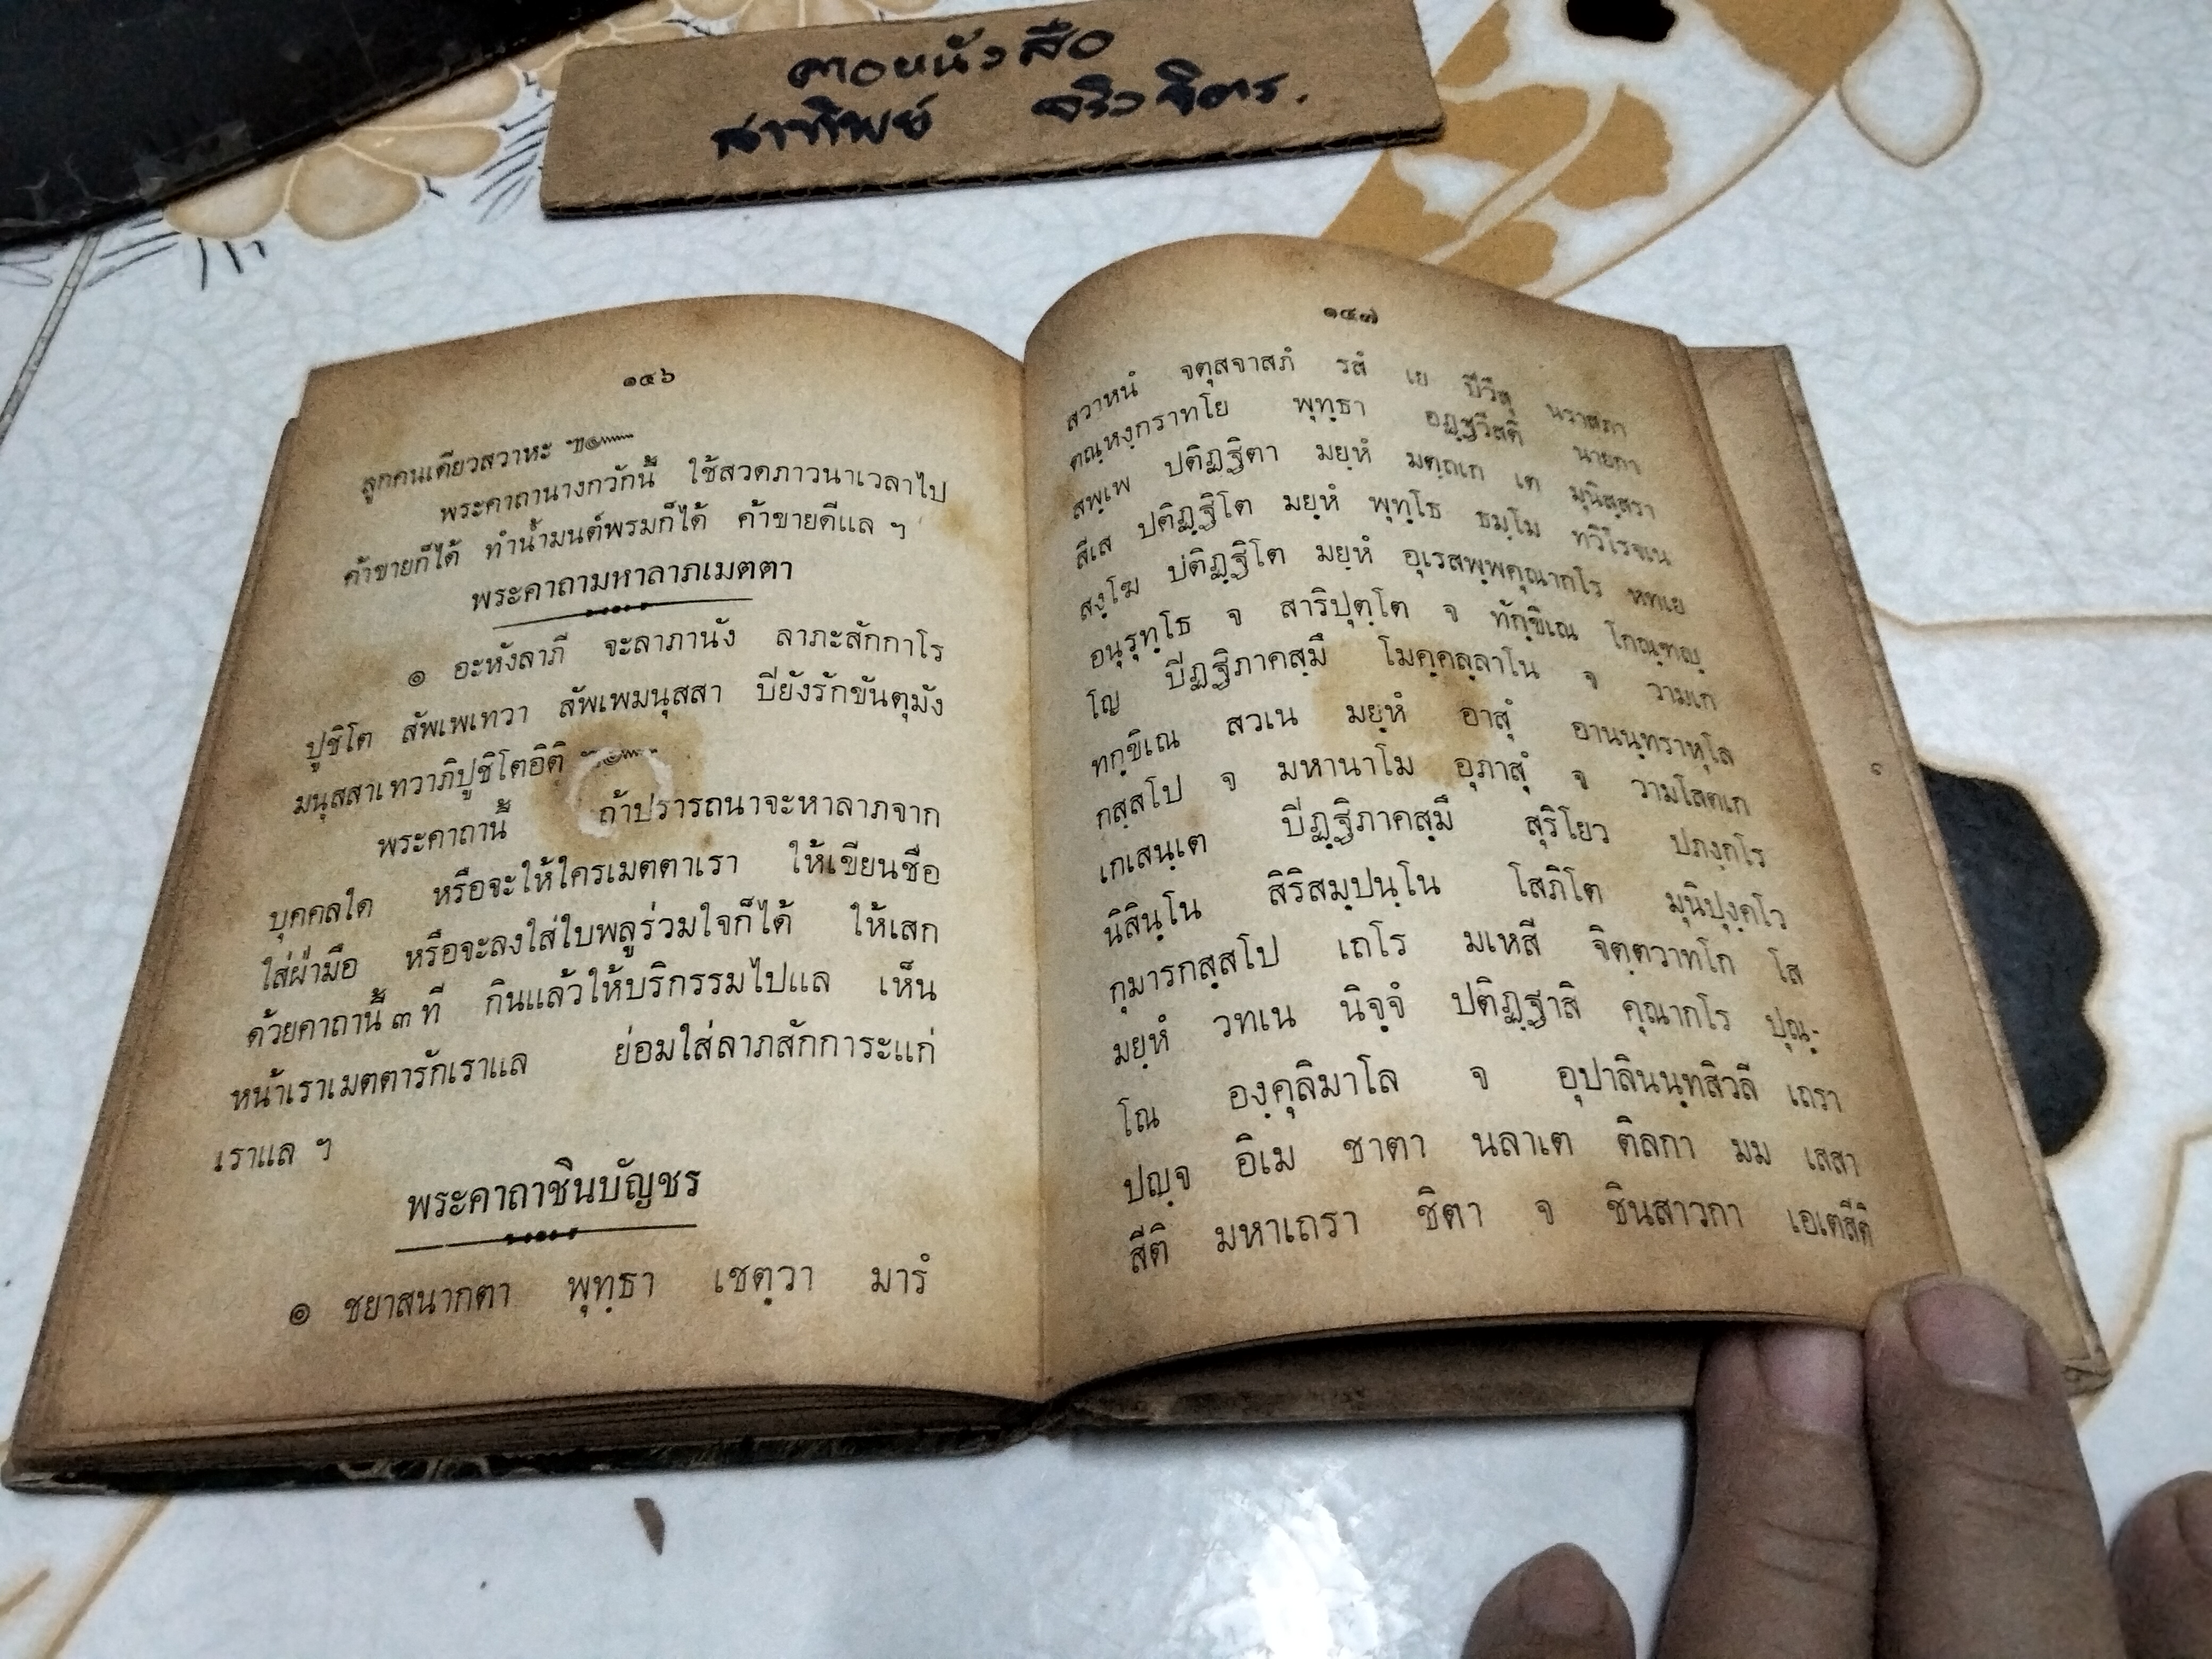 ตอหนังสือ
สาทิพย์ จริงจิตร.
๑๔๖
ลูกคนเดียวสวาหะ ๚ะ๛
พระคาถานางกวักนี้ ใช้สวดภาวนาเวลาไป
ค้าขายก็ได้ ทำน้ำมนต์พรมก็ได้ ค้าขายดีแล ฯ
พระคาถามหาลาภเมตตา
๑ อะหังลาภี จะลาภานัง ลาภะสักกาโร
ปูชิโต สัพเพเทวา สัพเพมนุสสา ปิยังรักขันตุมัง
มนุสสาเทวาภิปูชิโตอิติ ๚ะ๛
พระคาถานี้ ถ้าปรารถนาจะหาลาภจาก
บุคคลใด หรือจะให้ใครเมตตาเรา ให้เขียนชื่อ
ใส่ฝ่ามือ หรือจะลงใส่ใบพลูร่วมใจก็ได้ ให้เสก
ด้วยคาถานี้ ๓ ที กินแล้วให้บริกรรมไปแล เห็น
หน้าเราเมตตารักเราแล ย่อมใส่ลาภสักการะแก่
เราแล ฯ
พระคาถาชินบัญชร
๑ ชยาสนากตา พุทฺธา เชตฺวา มารํ
๑๔๗
สวาหนํ จตุสจาสภํ รสํ เย ปีวีสุ นราสภา
ตณฺหงฺกราทโย พุทฺธา อฏฺฐวีสติ นายกา
สพฺเพ ปติฏฺฐิตา มยฺหํ มตฺถเก เต มุนิสฺสรา
สีเส ปติฏฺฐิโต มยฺหํ พุทฺโธ ธมฺโม ทวิโรจเน
สงฺโฆ ปติฏฺฐิโต มยฺหํ อุเรสพฺพคุณากโร หทเย
อนุรุทฺโธ จ สาริปุตฺโต จ ทักฺขิเณ โกณฺฑญฺ
โญ ปิฏฺฐิภาคสฺมึ โมคฺคลฺลาโน จ วามเก
ทกฺขิเณ สวเน มยฺหํ อาสุํ อานนฺทราหุโล
กสฺสโป จ มหานาโม อุภาสุํ จ วามโสตเก
เกเสนฺเต ปิฏฺฐิภาคสฺมึ สุริโยว ปภงฺกโร
นิสินฺโน สิริสมฺปนฺโน โสภิโต มุนิปุงฺคโว
กุมารกสฺสโป เถโร มเหสี จิตฺตวาทโก โส
มยฺหํ วทเน นิจฺจํ ปติฏฺฐาสิ คุณากโร ปุณฺ-
โณ องฺคุลิมาโล จ อุปาลินนฺทสิวลี เถรา
ปญฺจ อิเม ชาตา นลาเต ติลกา มม เสสา
สีติ มหาเถรา ชิตา จ ชินสาวกา เอเตสีติ